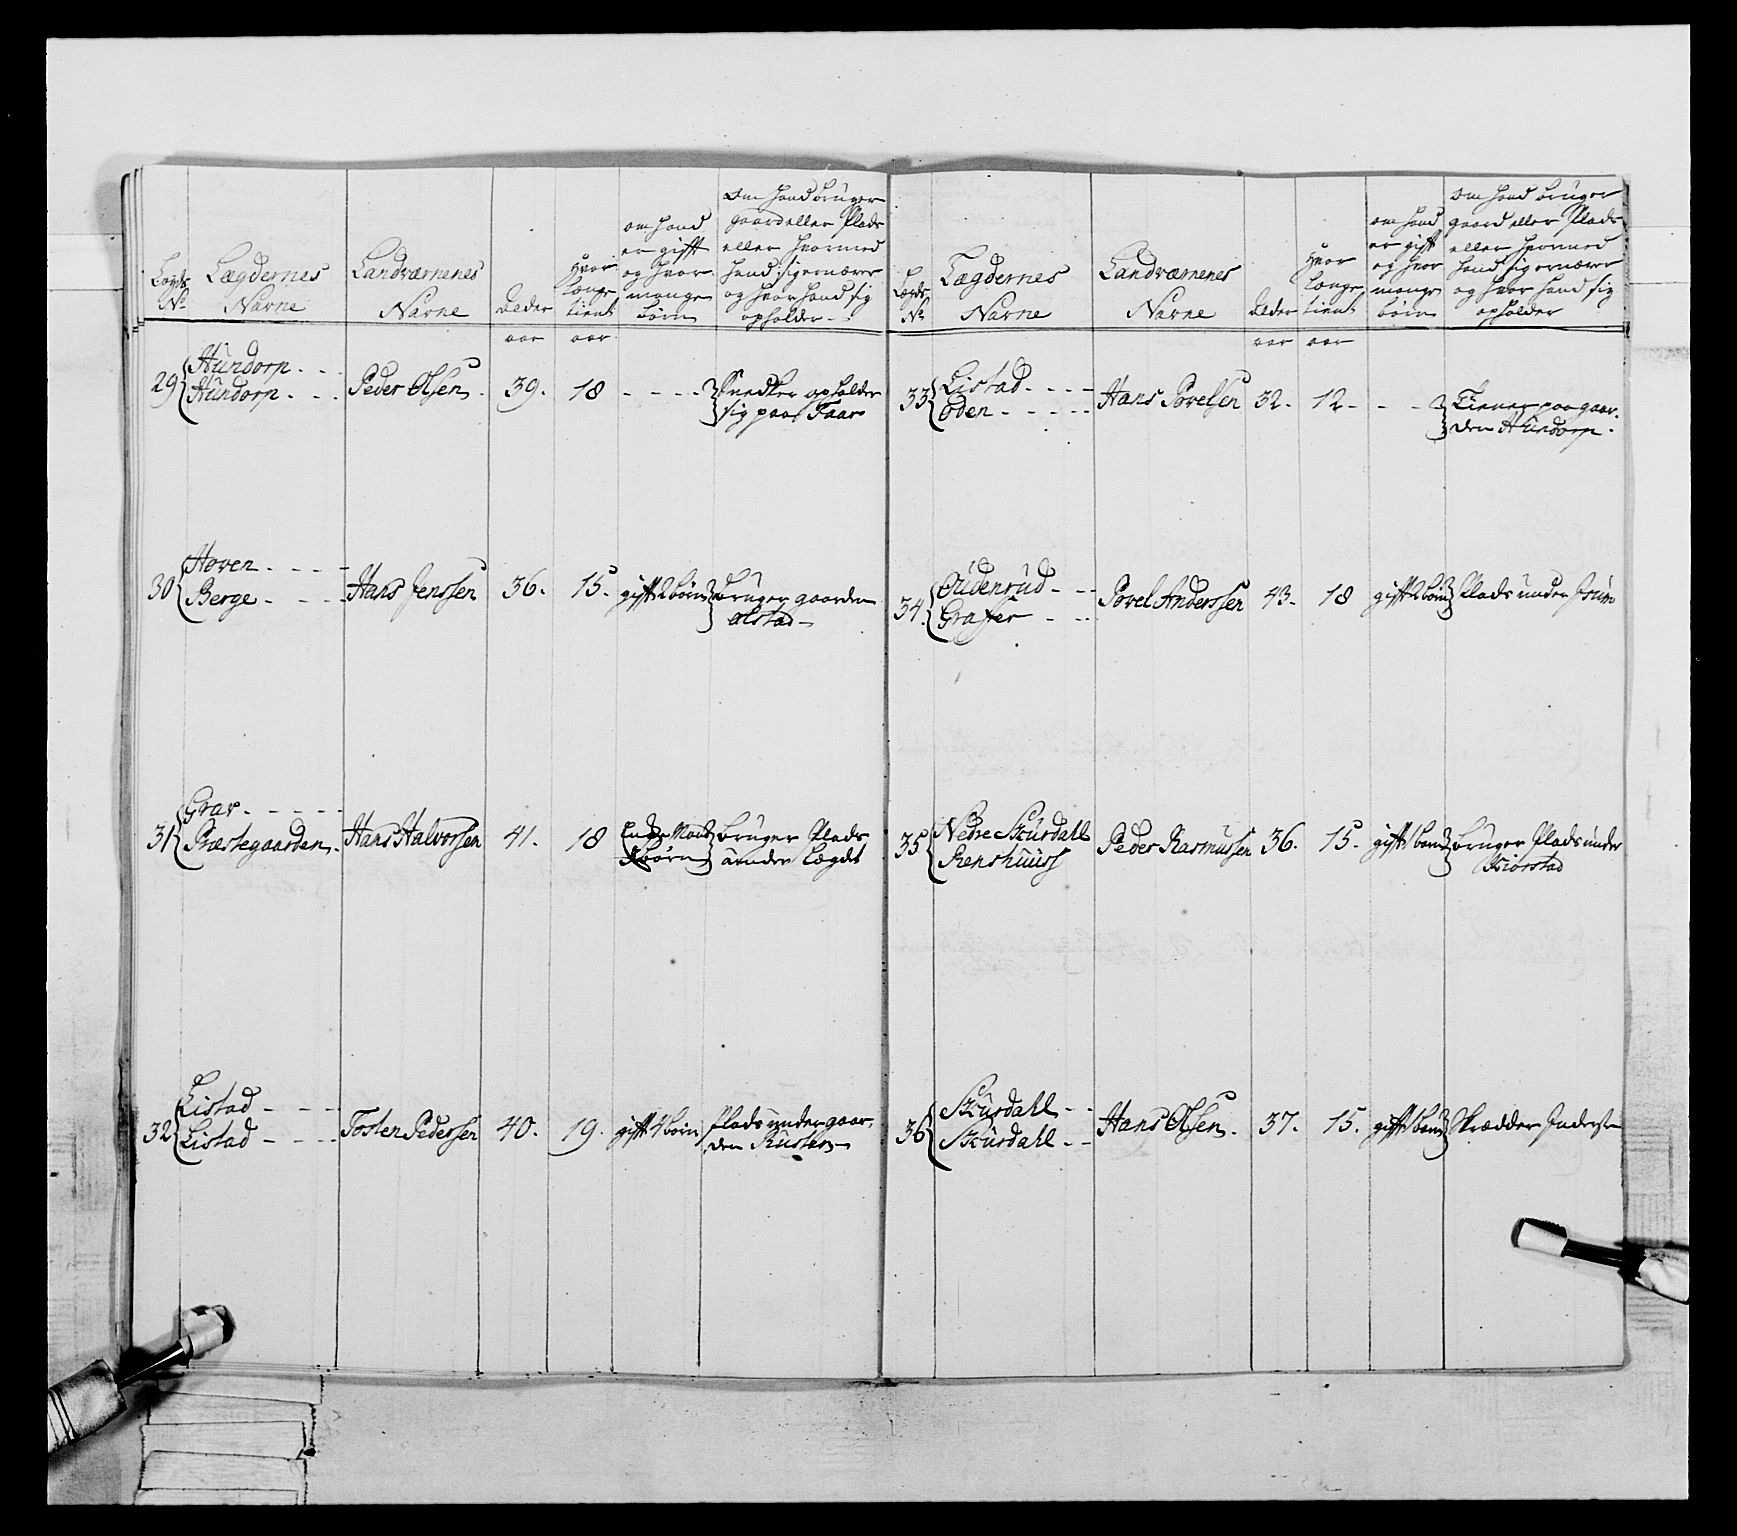 Lægds
No
Lægdernes
Navne
Landværnenes
Navne
Alder
Hvor
længe
tient
om hand
er gifft
og hvor
mange
børn
Om hand bruger
gaard eller Plads
eller hvormed
hand sig ernærer
og hvor hand sig
opholder
aar aar
29 Hundorp
Hundorp Peder Olsen 39. 18 Snedker opholder
sig paa Faar
30 Hoven
Berge Hans Jenssen 36. 15. gifft 2 børn bruger gaarden
Alstad
31 Grav
Præstegaarden Hans Halvorsen 41. 18 Enke Mand
børn
bruger Plads
under Lægdet
32 Listad
Listad Tosten Pederssen 40. 19. gift 4 børn Plads under gaar
den Rusten
Lægds
No
Lægdernes
Navne
Landværnenes
Navne
Alder
Hvor
længe
tient
om hand
er gift
og hvor
mange
børn
Om hand bruger
gaard eller Plads
eller hvormed
hand sig ernærer
og hvor hand sig
opholder
aar aar
33 Listad
Oden Hans Povelsen 32. 12. Tiener paa gaar
den Hundorp
34 Oudenrud
Graffer Povel Anderssen 43. 18 gift 2 børn Plads under
35 Nedre Skurdahl
Renshuuss Peder Rasmussen 36. 15. gift 1 barn bruger Plads under
Kiorstad
36 Skurdahl
Skurdahl Hans Olsen 37. 15. gift 1 barn Skrædder Inderste